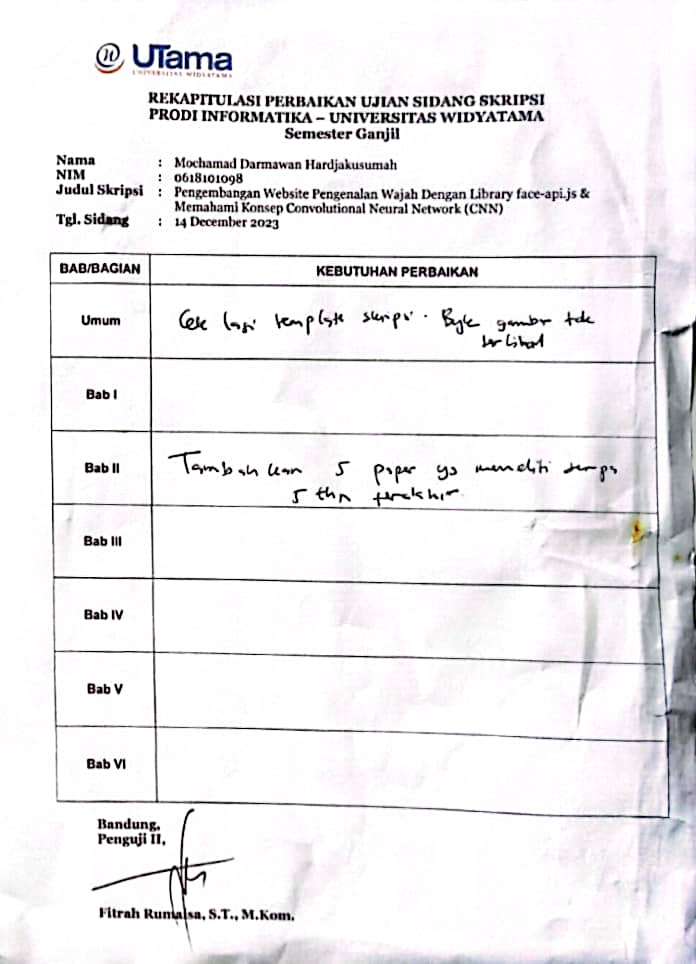 UTama
UNIVERSITAS WIDYATAMA
REKAPITULASI PERBAIKAN UJIAN SIDANG SKRIPSI
PRODI INFORMATIKA – UNIVERSITAS WIDYATAMA
Semester Ganjil
Nama : Mochamad Darmawan Hardjakusumah
NIM : 0618101098
Judul Skripsi : Pengembangan Website Pengenalan Wajah Dengan Library face-api.js &
Memahami Konsep Convolutional Neural Network (CNN)
Tgl. Sidang : 14 December 2023
BAB/BAGIAN KEBUTUHAN PERBAIKAN
Umum Cek lagi template skripsi. Byk gambar tdk
terlihat
Bab I
Bab II Tambahkan 5 paper yg meneliti serupa
5 thn terakhir.
Bab III
Bab IV
Bab V
Bab VI
Bandung,
Penguji II,
Fitrah Rumaisa, S.T., M.Kom.